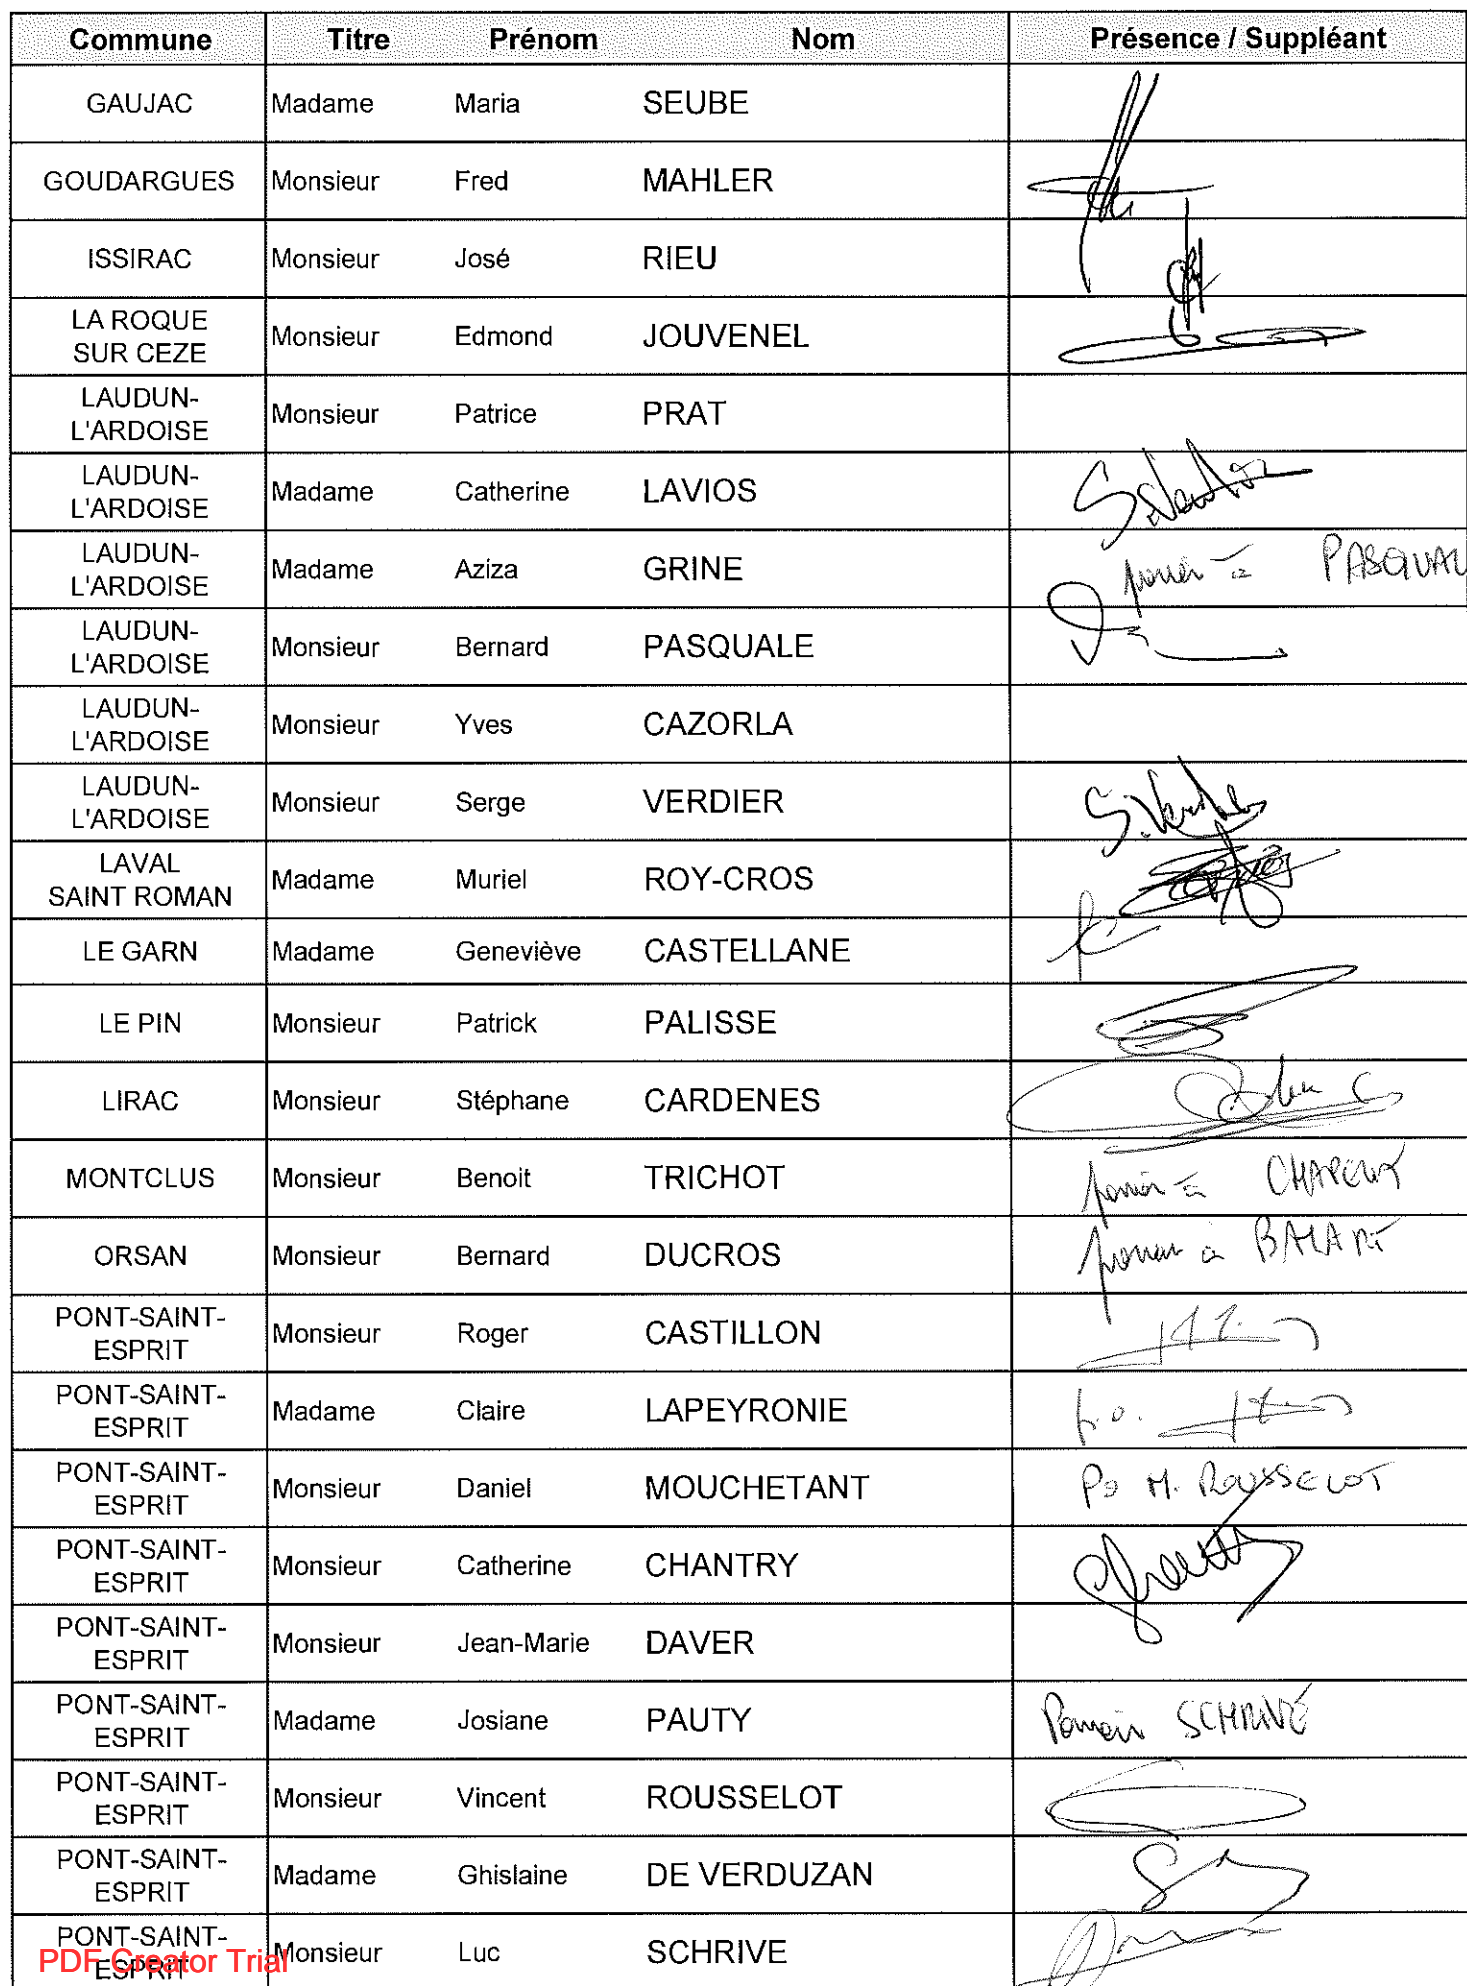 Commune Titre Prénom Nom Présence / Suppléant
GAUJAC Madame Maria SEUBE
GOUDARGUES Monsieur Fred MAHLER
ISSIRAC Monsieur José RIEU
LA ROQUE
SUR CEZE Monsieur Edmond JOUVENEL
LAUDUN-
L'ARDOISE Monsieur Patrice PRAT
LAUDUN-
L'ARDOISE Madame Catherine LAVIOS
LAUDUN-
L'ARDOISE Madame Aziza GRINE à PASQUAL
LAUDUN-
L'ARDOISE Monsieur Bernard PASQUALE
LAUDUN-
L'ARDOISE Monsieur Yves CAZORLA
LAUDUN-
L'ARDOISE Monsieur Serge VERDIER
LAVAL
SAINT ROMAN Madame Muriel ROY-CROS
LE GARN Madame Geneviève CASTELLANE
LE PIN Monsieur Patrick PALISSE
LIRAC Monsieur Stéphane CARDENES
MONTCLUS Monsieur Benoit TRICHOT à
ORSAN Monsieur Bernard DUCROS à
PONT-SAINT-
ESPRIT Monsieur Roger CASTILLON
PONT-SAINT-
ESPRIT Madame Claire LAPEYRONIE p.o.
PONT-SAINT-
ESPRIT Monsieur Daniel MOUCHETANT Po M. ROUSSELOT
PONT-SAINT-
ESPRIT Monsieur Catherine CHANTRY
PONT-SAINT-
ESPRIT Monsieur Jean-Marie DAVER
PONT-SAINT-
ESPRIT Madame Josiane PAUTY SCHRIVE
PONT-SAINT-
ESPRIT Monsieur Vincent ROUSSELOT
PONT-SAINT-
ESPRIT Madame Ghislaine DE VERDUZAN
PONT-SAINT-
ESPRIT Monsieur Luc SCHRIVE
PDF Creator Trial